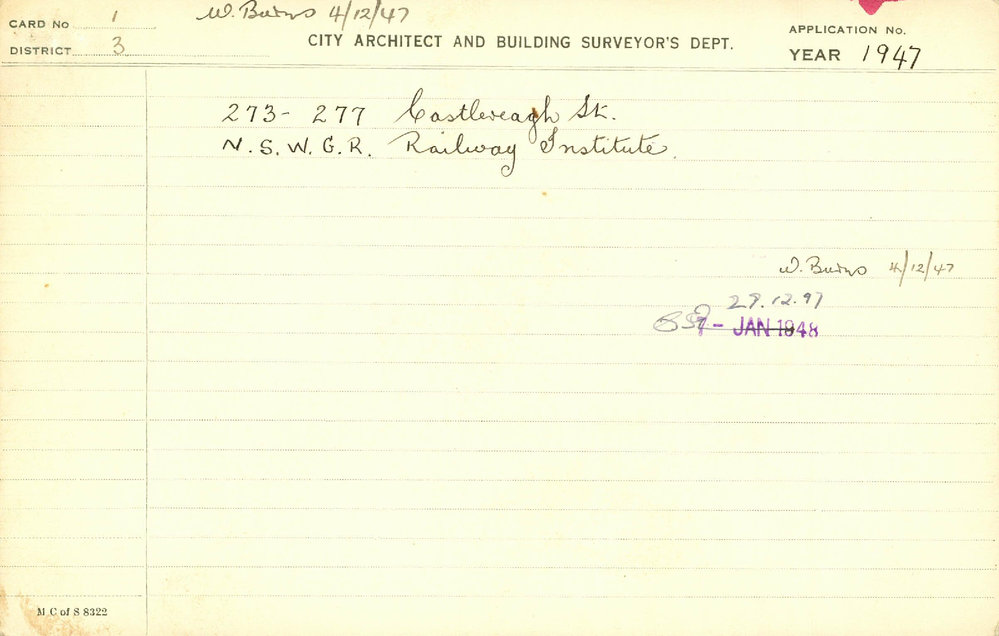 CARD No 1
W. Burns 4/12/47
APPLICATION No.
DISTRICT 3
CITY ARCHITECT AND BUILDING SURVEYOR'S DEPT.
YEAR 1947
273- 277 Castlereagh St.
N.S.W.G.R. Railway Institute.
W. Burns 4/12/47
29.12.47
- JAN 1948
M C of S 8322